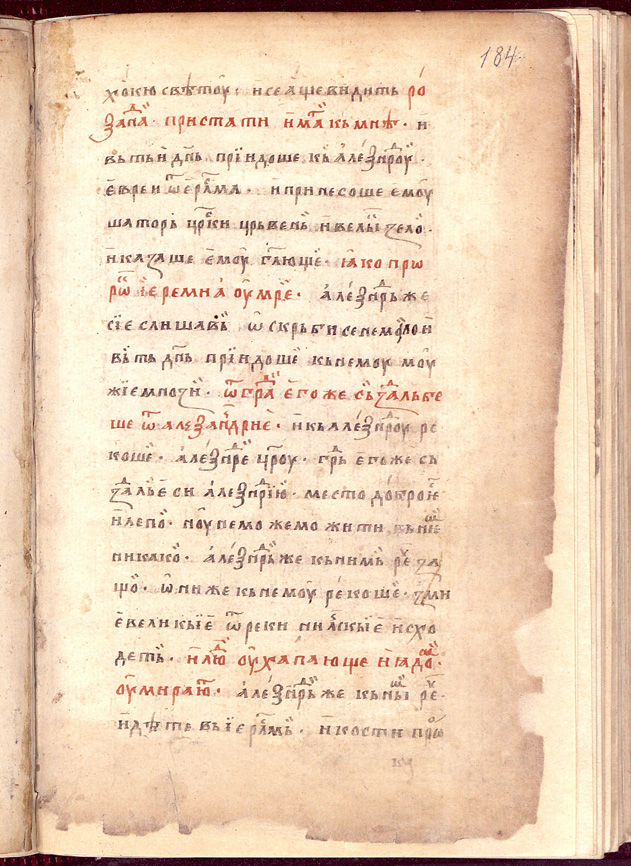 184
хою свѣтоу · и се аще видить ро
запⷣа · пристати имаⷨ къ мнѣ · и
въ тьи дⷩ҇ь прїидоше къ алеѯнⷣроу ·
еврей ѿ ерⷭ҇лма · и принесоше емоу
шаторь црⷭ҇ки црьвень и велы ѕело ·
и казаше емоу гл҃юще · ꙗко про
рⷪ҇ иеремиа оумрѣ · алеѯнⷣрь же
сїе слишавь ѡскрьби се немⷧ҇ои
въ тъ дⷩ҇ь прїидоше къ немоу моу
жїе мноѕи · ѿ граⷣ его же съꙁдаль бе
ше ѿ алеѯанⷣрие · и къ алеѯнⷣроу ре
коше · алеѯнⷣре цр҃оу · граⷣ его же съ
ꙁдаль еси алеѯнⷣрїю · место добро и
и лепо · нь не можемо жити въ нѥⷨ
никако · алеѯнⷣрь же къ нимь реⷱ ꙁа
що · ѡни же къ немоу рекоше · ꙁми
е великые ѿ реки нилскые исхо
деть · и люⷣ оухапающе и ꙗдоⷨ ·
оумираюⷮ · алеѯнⷣрь же къ ниⷨ реⷱ ·
идѣте въ їерⷭ҇лмь · и кости прⷪ҇